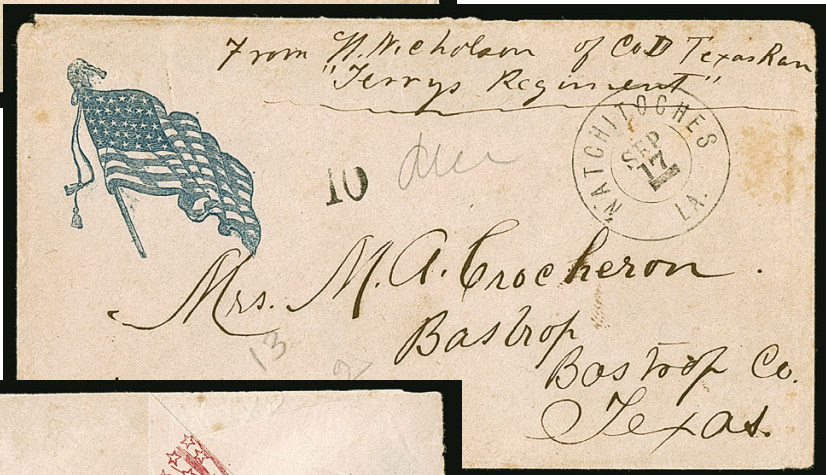 From H. Nicholson of Co D Texas Ran
"Terrys Regiment"
NATCHITOCHES
SEP
17
LA.
10 Due
Mrs. M. A. Crocheron.
Bastrop
Bastrop Co.
Texas.
13
2